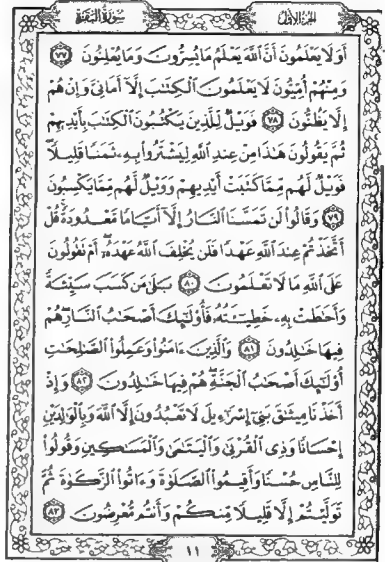 سُورَةُ الْبَقَرَةِ
الجُزءُ الأوَّلُ
أَوَلَا يَعْلَمُونَ أَنَّ ٱللَّهَ يَعْلَمُ مَا يُسِرُّونَ وَمَا يُعْلِنُونَ ﴿٧٧﴾
وَمِنْهُمْ أُمِّيُّونَ لَا يَعْلَمُونَ ٱلْكِتَٰبَ إِلَّآ أَمَانِىَّ وَإِنْ هُمْ
إِلَّا يَظُنُّونَ ﴿٧٨﴾ فَوَيْلٌ لِّلَّذِينَ يَكْتُبُونَ ٱلْكِتَٰبَ بِأَيْدِيهِمْ
ثُمَّ يَقُولُونَ هَٰذَا مِنْ عِندِ ٱللَّهِ لِيَشْتَرُوا۟ بِهِۦ ثَمَنًا قَلِيلًا
فَوَيْلٌ لَّهُم مِّمَّا كَتَبَتْ أَيْدِيهِمْ وَوَيْلٌ لَّهُم مِّمَّا يَكْسِبُونَ
﴿٧٩﴾ وَقَالُوا۟ لَن تَمَسَّنَا ٱلنَّارُ إِلَّآ أَيَّامًا مَّعْدُودَةً قُلْ
أَتَّخَذْتُمْ عِندَ ٱللَّهِ عَهْدًا فَلَن يُخْلِفَ ٱللَّهُ عَهْدَهُۥٓ أَمْ تَقُولُونَ
عَلَى ٱللَّهِ مَا لَا تَعْلَمُونَ ﴿٨٠﴾ بَلَىٰ مَن كَسَبَ سَيِّئَةً
وَأَحَٰطَتْ بِهِۦ خَطِيٓـَٔتُهُۥ فَأُو۟لَٰٓئِكَ أَصْحَٰبُ ٱلنَّارِ هُمْ
فِيهَا خَٰلِدُونَ ﴿٨١﴾ وَٱلَّذِينَ ءَامَنُوا۟ وَعَمِلُوا۟ ٱلصَّٰلِحَٰتِ
أُو۟لَٰٓئِكَ أَصْحَٰبُ ٱلْجَنَّةِ هُمْ فِيهَا خَٰلِدُونَ ﴿٨٢﴾ وَإِذْ
أَخَذْنَا مِيثَٰقَ بَنِىٓ إِسْرَٰٓءِيلَ لَا تَعْبُدُونَ إِلَّا ٱللَّهَ وَبِٱلْوَٰلِدَيْنِ
إِحْسَانًا وَذِى ٱلْقُرْبَىٰ وَٱلْيَتَٰمَىٰ وَٱلْمَسَٰكِينِ وَقُولُوا۟
لِلنَّاسِ حُسْنًا وَأَقِيمُوا۟ ٱلصَّلَوٰةَ وَءَاتُوا۟ ٱلزَّكَوٰةَ ثُمَّ
تَوَلَّيْتُمْ إِلَّا قَلِيلًا مِّنكُمْ وَأَنتُم مُّعْرِضُونَ ﴿٨٣﴾
١١